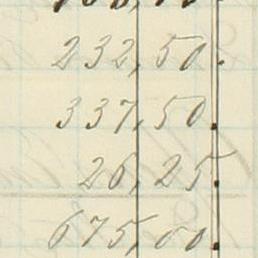 232,50.
337,50.
26,25.
675,00.